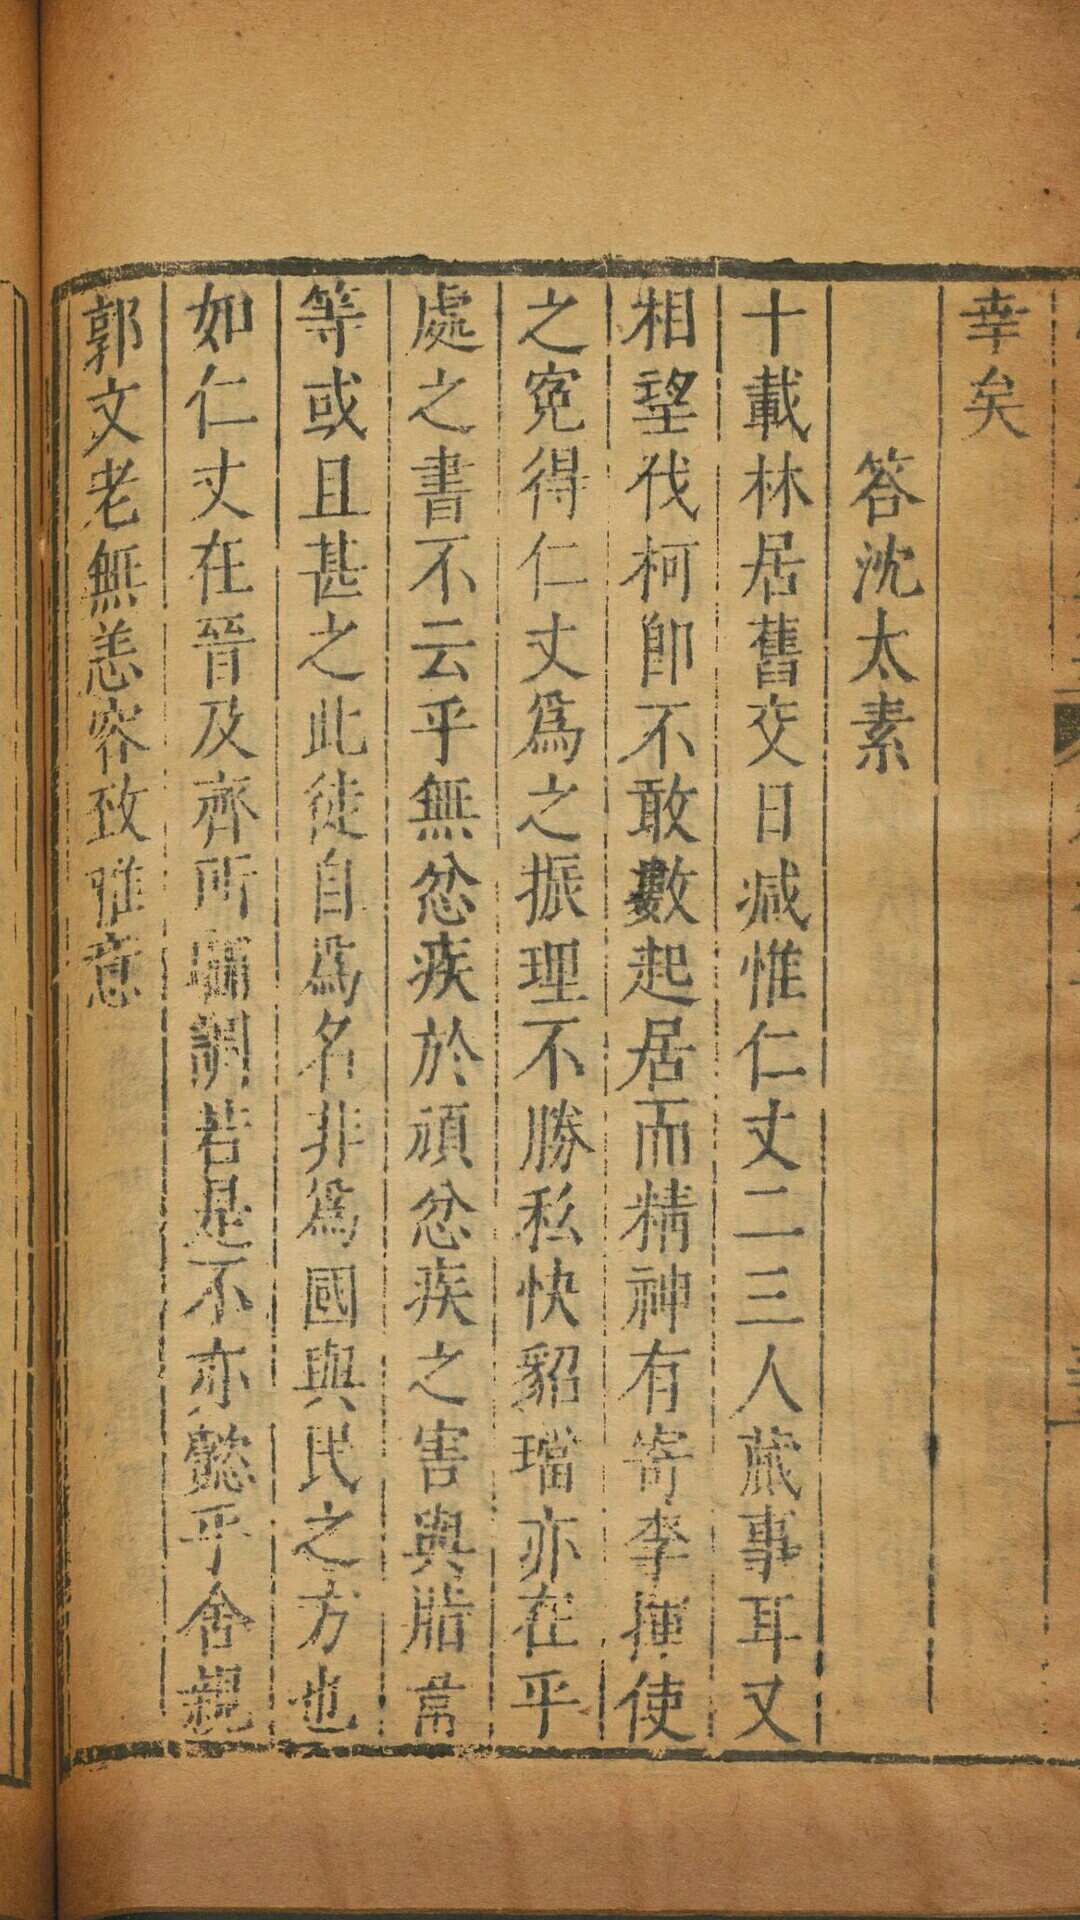 幸矣
答沈太素
十載林居舊交日減惟仁丈二三人蔵事耳又
相望伐柯卽不敢數起居而精神有寄李揮使
之寃得仁丈爲之振理不勝私快貂璫亦在乎
處之書不云乎無忿疾於頑忿疾之害與脂韋
等或且甚之此徒自爲名非爲國與民之方也
如仁丈在晉及齊所彌調若是不亦懿乎舍親
郭文老無恙容致雅意